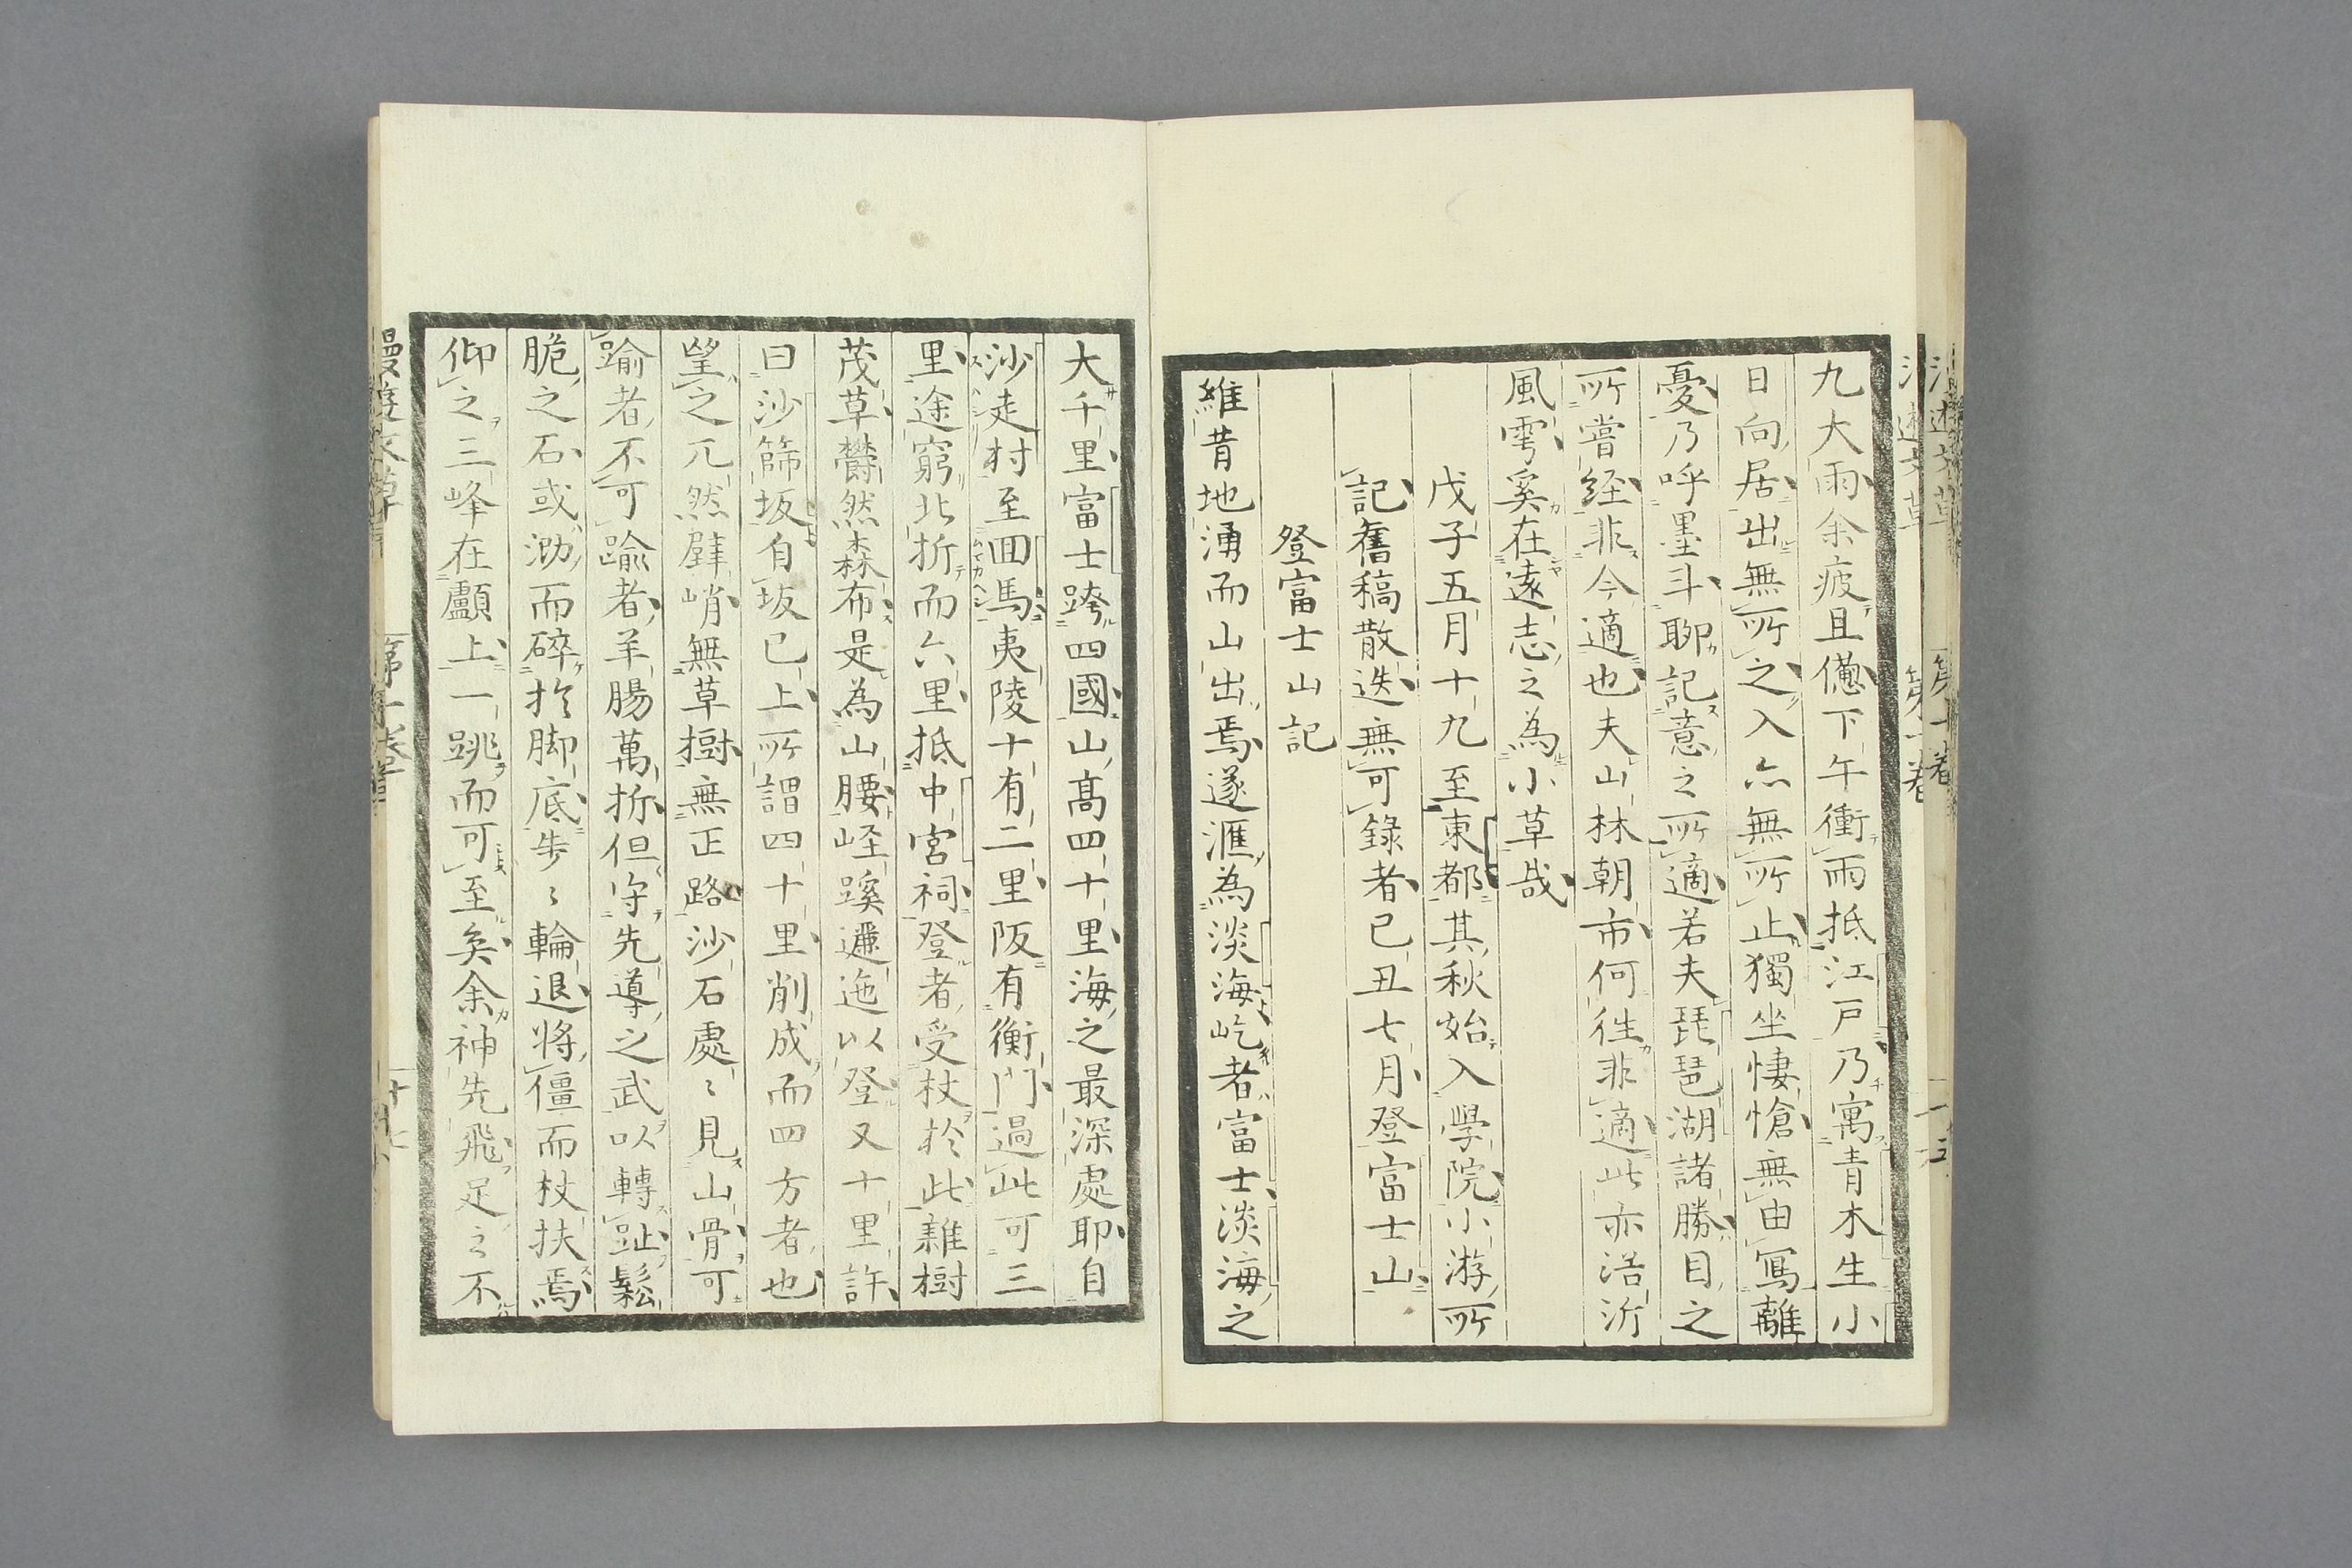 九大雨余疲且憊下午衝雨抵江戸乃寓青木生小
日向居出無所之入亦無所止獨坐悽愴無由寫離
憂乃呼墨斗聊記意之所適若夫琵琶湖諸勝目之
所嘗經非今適也夫山林朝市何徃非適此亦浴沂
風雩奚在遠志之為小草哉
戊子五月十九至東都其秋始入學院小游所
記舊稿散迭無可錄者已丑七月登富士山
登富士山記
維昔地湧而山出焉遂滙為淡海屹者富士淡海之
大千里富士跨四國山髙四十里海之最深處耶自
沙走村至囬馬夷陵十有二里阪有衡門過此可三
里途窮北折而六里抵中宮祠登者受杖於此雜樹
茂草欝然森布是為山腰峌蹊邐迤以登又十里許
曰沙篩坂自坂已上所謂四十里削成而四方者也
望之兀然壁峭無草樹無正路沙石處〻見山骨可
踰者不可踰者羊腸萬折但守先導之武以轉趾鬆
脆之石或泐而碎於脚底步〻輪退將僵而杖扶焉
仰之三峰在顱上一跳而可至矣余神先飛足之不
漫遊文草
第一卷